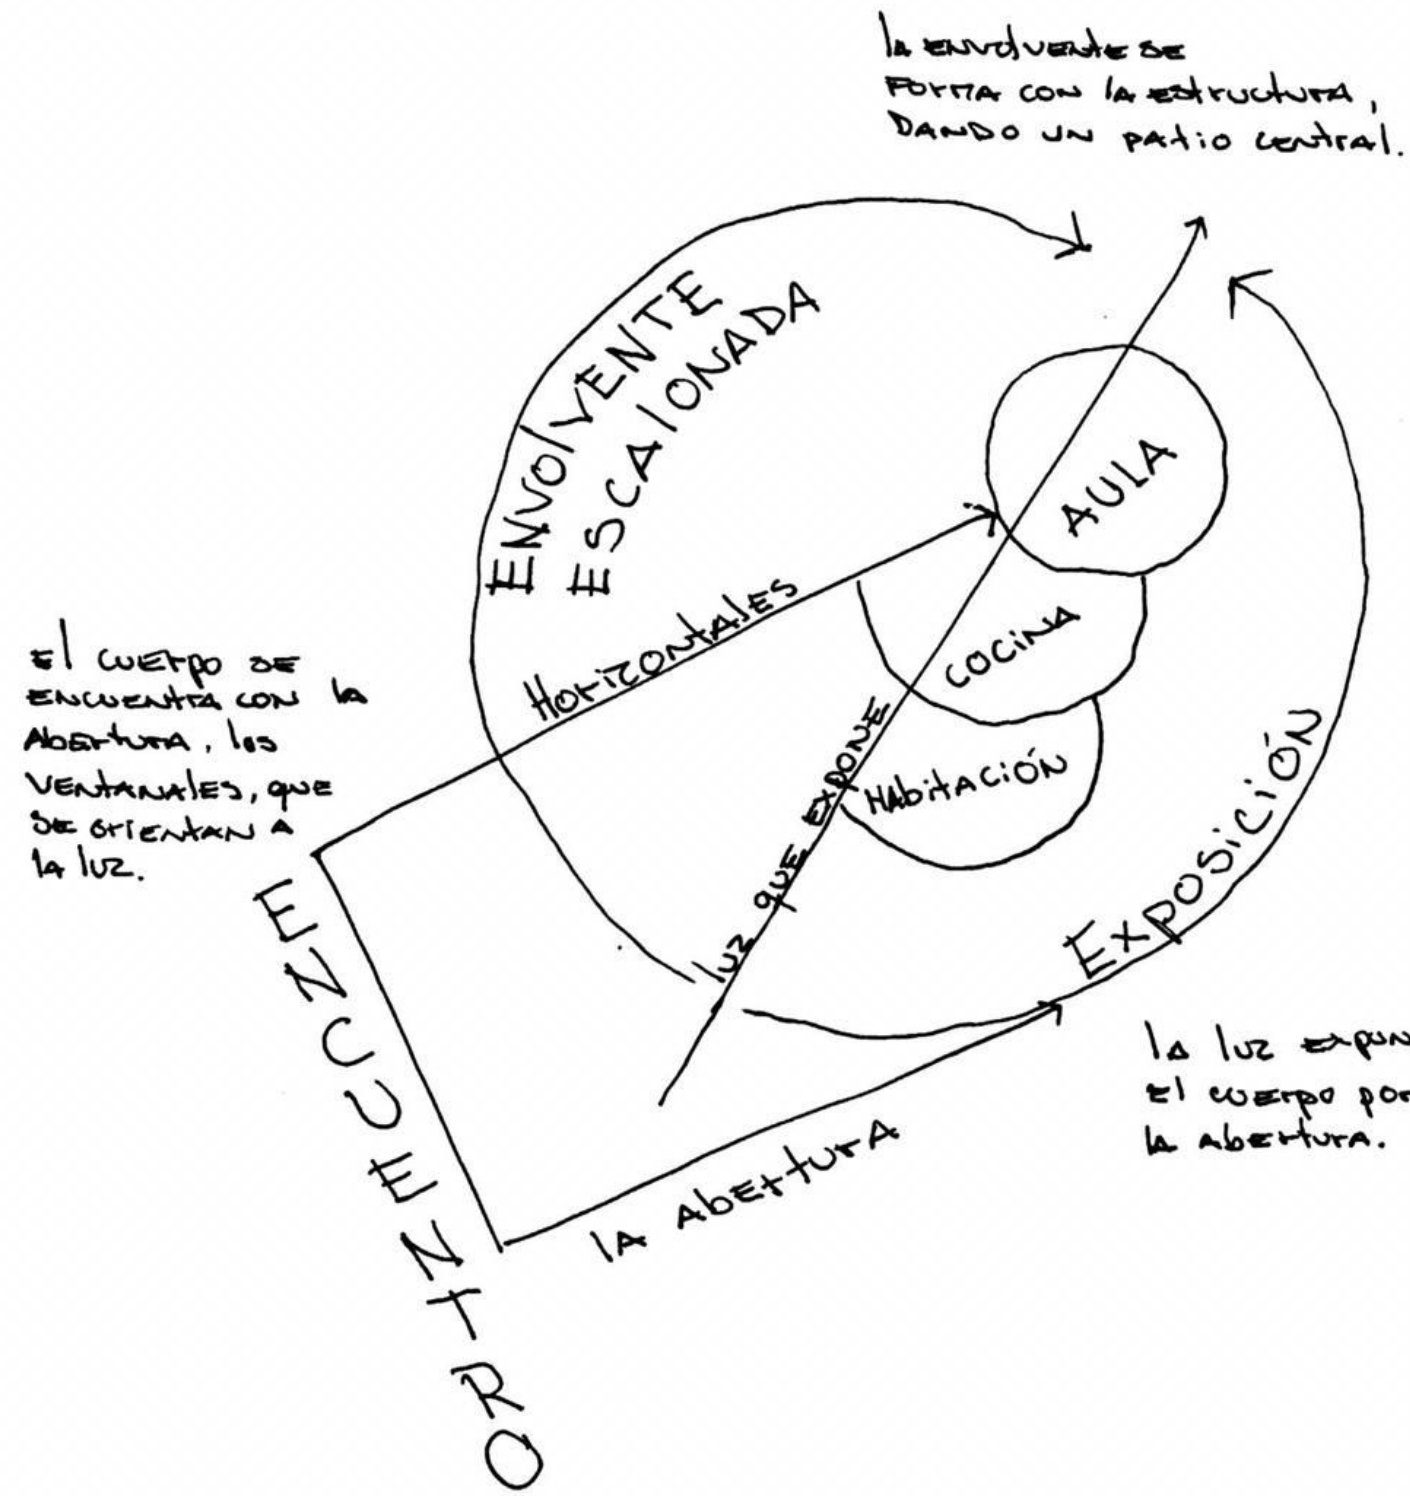 la envolvente se
forma con la estructura,
dando un patio central.
ENVOlVENTE
ESCAlONADA
AULA
Horizontales
cocina
Habitación
luz que expone
Exposición
El cuerpo se
encuentra con la
abertura, los
ventanales, que
se orientan a
la luz.
ENCUENTRO
la abertura
la luz expon
el cuerpo por
la abertura.